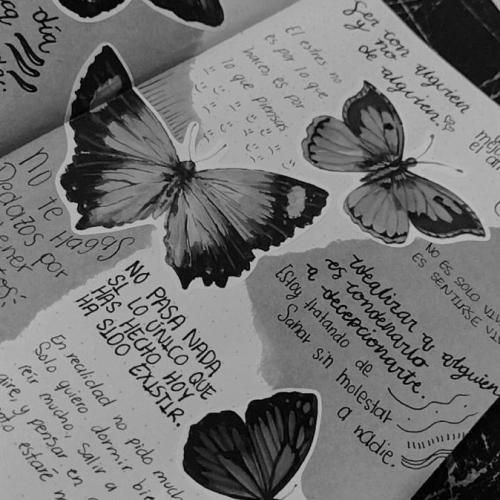 día
No te Hagas
Pedazos por
NO PASA NADA
SI LO ÚNICO QUE
HAS HECHO HOY
HA SIDO EXISTIR.
En realidad no pido mucho
Solo quiero dormir
reír mucho, salir a
aire, y pensar en
estaré
El estres no
es por lo que
haces, es por
lo que piensas
Ser con alguien
y no
de alguien
NO ES SOLO
ES SENTIRSE
Idealizar a alguien
es condenarlo
a decepcionarte.
Estoy tratando de
Sanar sin molestar
a nadie.